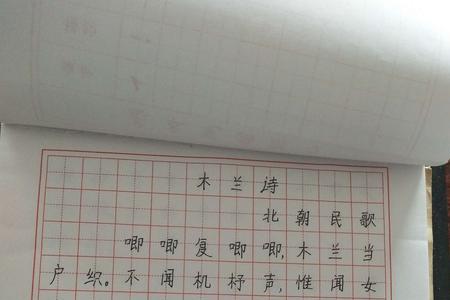 木兰诗
北朝民歌
唧唧复唧唧,木兰当
户织。不闻机杼声,惟闻女